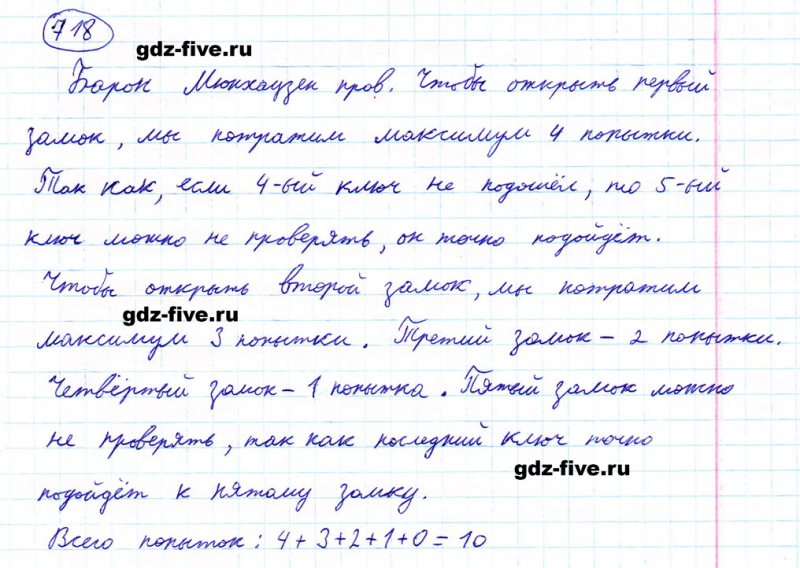 718
gdz-five.ru
Барон Мюнхаузен прав. Чтобы открыть первый
замок, мы потратим максимум 4 попытки.
Так как, если 4-ый ключ не подошёл, то 5-ый
ключ можно не проверять, он точно подойдёт.
Чтобы открыть второй замок, мы потратим
gdz-five.ru
максимум 3 попытки. Третий замок – 2 попытки.
Четвёртый замок – 1 попытка. Пятый замок можно
не проверять, так как последний ключ точно
gdz-five.ru
подойдёт к пятому замку.
Всего попыток: 4+3+2+1+0=10